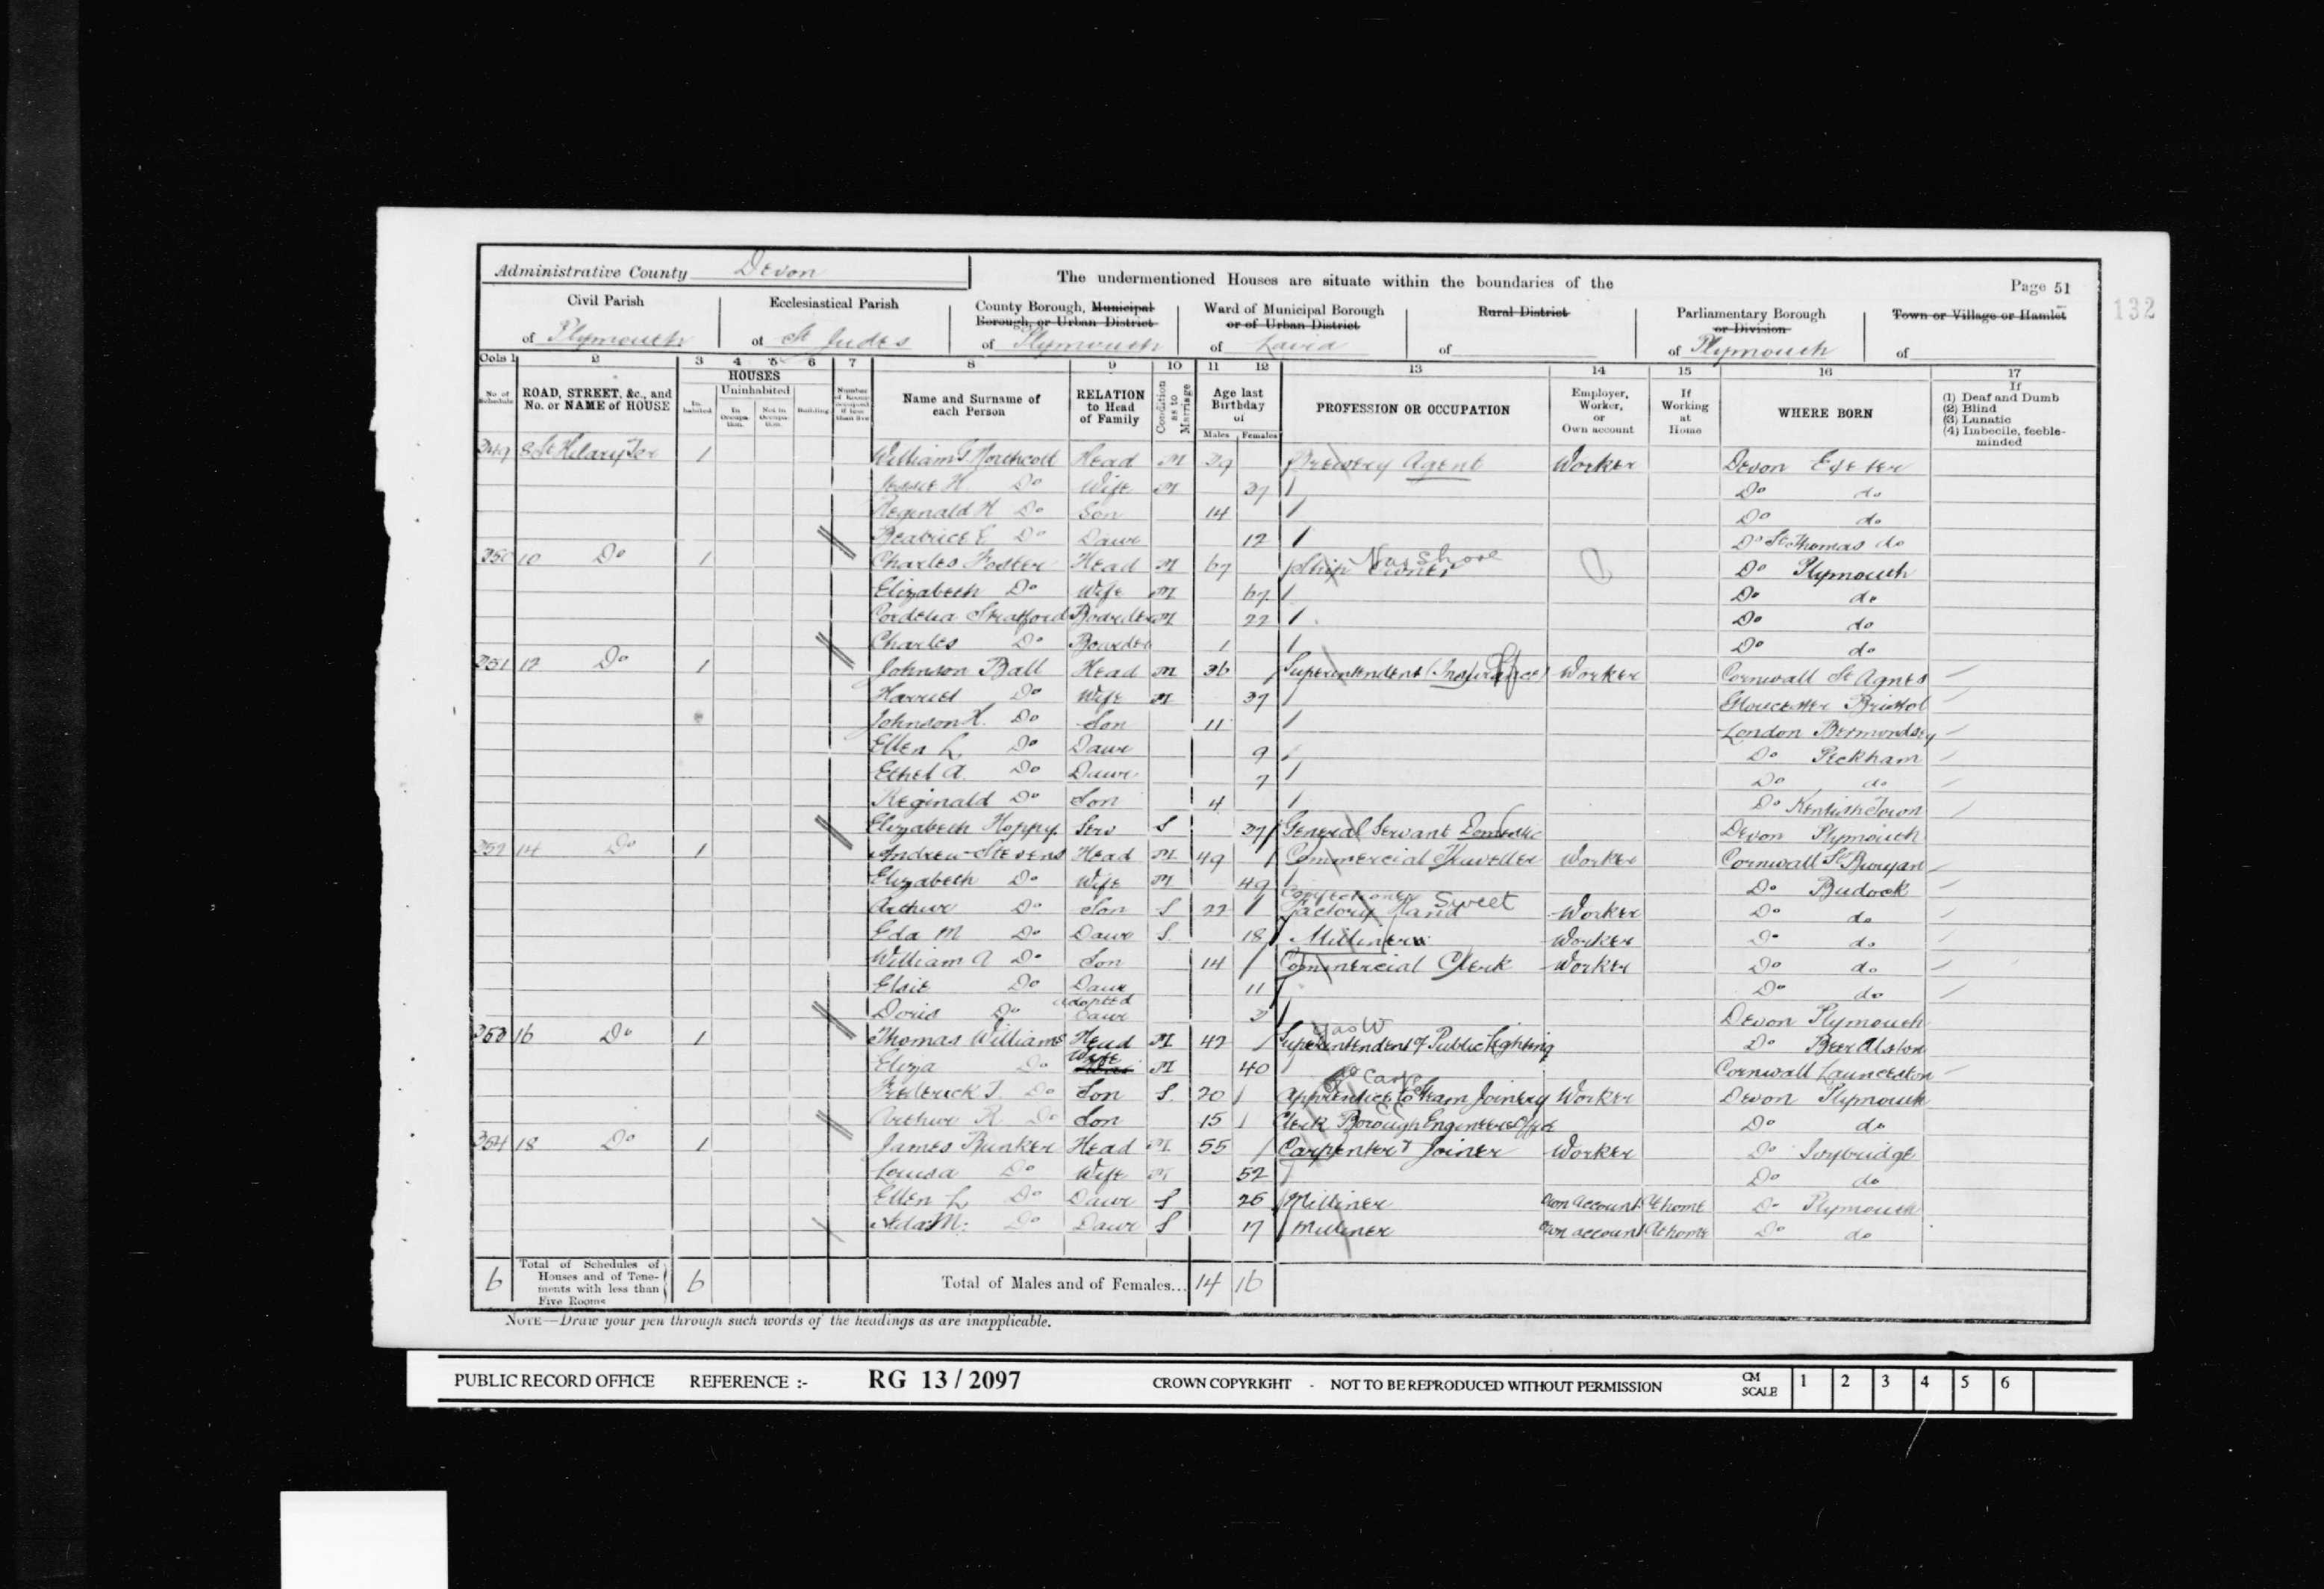 Administrative County Devon
The undermentioned Houses are situate within the boundaries of the
Page 51
132
Civil Parish of Plymouth
Ecclesiastical Parish of St Judes
County Borough, Municipal Borough, or Urban District of Plymouth
Ward of Municipal Borough or of Urban District of Laira
Rural District of
Parliamentary Borough or Division of Plymouth
Town or Village or Hamlet of
Cols 1 2 3 4 5 6 7 8 9 10 11 12 13 14 15 16 17
No. of Schedule
ROAD, STREET, &c., and No. or NAME of HOUSE
HOUSES
Inhabited
Uninhabited
In Occupation.
Not in Occupation.
Building
Number of Rooms occupied if less than five
Name and Surname of each Person
RELATION to Head of Family
Condition as to Marriage
Age last Birthday of
Males Females
PROFESSION OR OCCUPATION
Employer, Worker, or Own account
If Working at Home
WHERE BORN
If (1) Deaf and Dumb (2) Blind (3) Lunatic (4) Imbecile, feeble-minded
349 8 St Hilary Ter 1 William J Northcott Head M 39 Brewery Agent Worker Devon Exeter
Jessie H. Do Wife M 37 Do do
Reginald H Do Son 14 Do do
Beatrice E Do Daur 12 Do St Thomas do
350 10 Do 1 Charles Foster Head M 67 Ship Owner Nav Shore Do Plymouth
Elizabeth Do Wife M 67 Do do
Cordelia Stratford Boarder M 22 Do do
Charles Do Boarder 1 Do do
351 12 Do 1 Johnson Ball Head M 36 Superintendent (Insurance) Worker Cornwall St Agnes
Harriet Do Wife M 37 Gloucester Bristol
Johnson H. Do Son 11 London Bermondsey
Ellen L Do Daur 9 Do Peckham
Ethel A. Do Daur 7 Do do
Reginald Do Son 4 Do Kentish Town
Elizabeth Hoppy Serv S 37 General Servant Domestic Devon Plymouth
352 14 Do 1 Andrew Stevens Head M 49 Commercial Traveller Worker Cornwall St Buryan
Elizabeth Do Wife M 49 Do Budock
Arthur Do Son S 22 Confectioner Factory Hand Sweet Worker Do do
Eda M Do Daur S. 18 Milliner Worker Do do
William A Do Son 14 Commercial Clerk Worker Do do
Elsie Do Daur 11 Do do
Doris Do adopted Daur 3 Devon Plymouth
353 16 Do 1 Thomas Williams Head M 42 Gas W Superintendent of Public Lighting Do Beer Alston
Eliza Do Wife M 40 Cornwall Launceston
Frederick J. Do Son S. 20 Carp Apprentice to Steam Joinery Worker Devon Plymouth
Arthur R Do Son 15 Clerk Borough Engineers Office Do do
354 18 Do 1 James Bunker Head M 55 Carpenter & Joiner Worker Do Ivybridge
Louisa Do Wife M 52 Do do
Ellen L Do Daur S 26 Milliner Own account At home Do Plymouth
Ada M. Do Daur S 17 Milliner Own account At home Do do
6 Total of Schedules of Houses and of Tenements with less than Five Rooms 6 Total of Males and of Females... 14 16
NOTE—Draw your pen through such words of the headings as are inapplicable.
PUBLIC RECORD OFFICE REFERENCE :- RG 13 / 2097 CROWN COPYRIGHT - NOT TO BE REPRODUCED WITHOUT PERMISSION CM SCALE 1 2 3 4 5 6